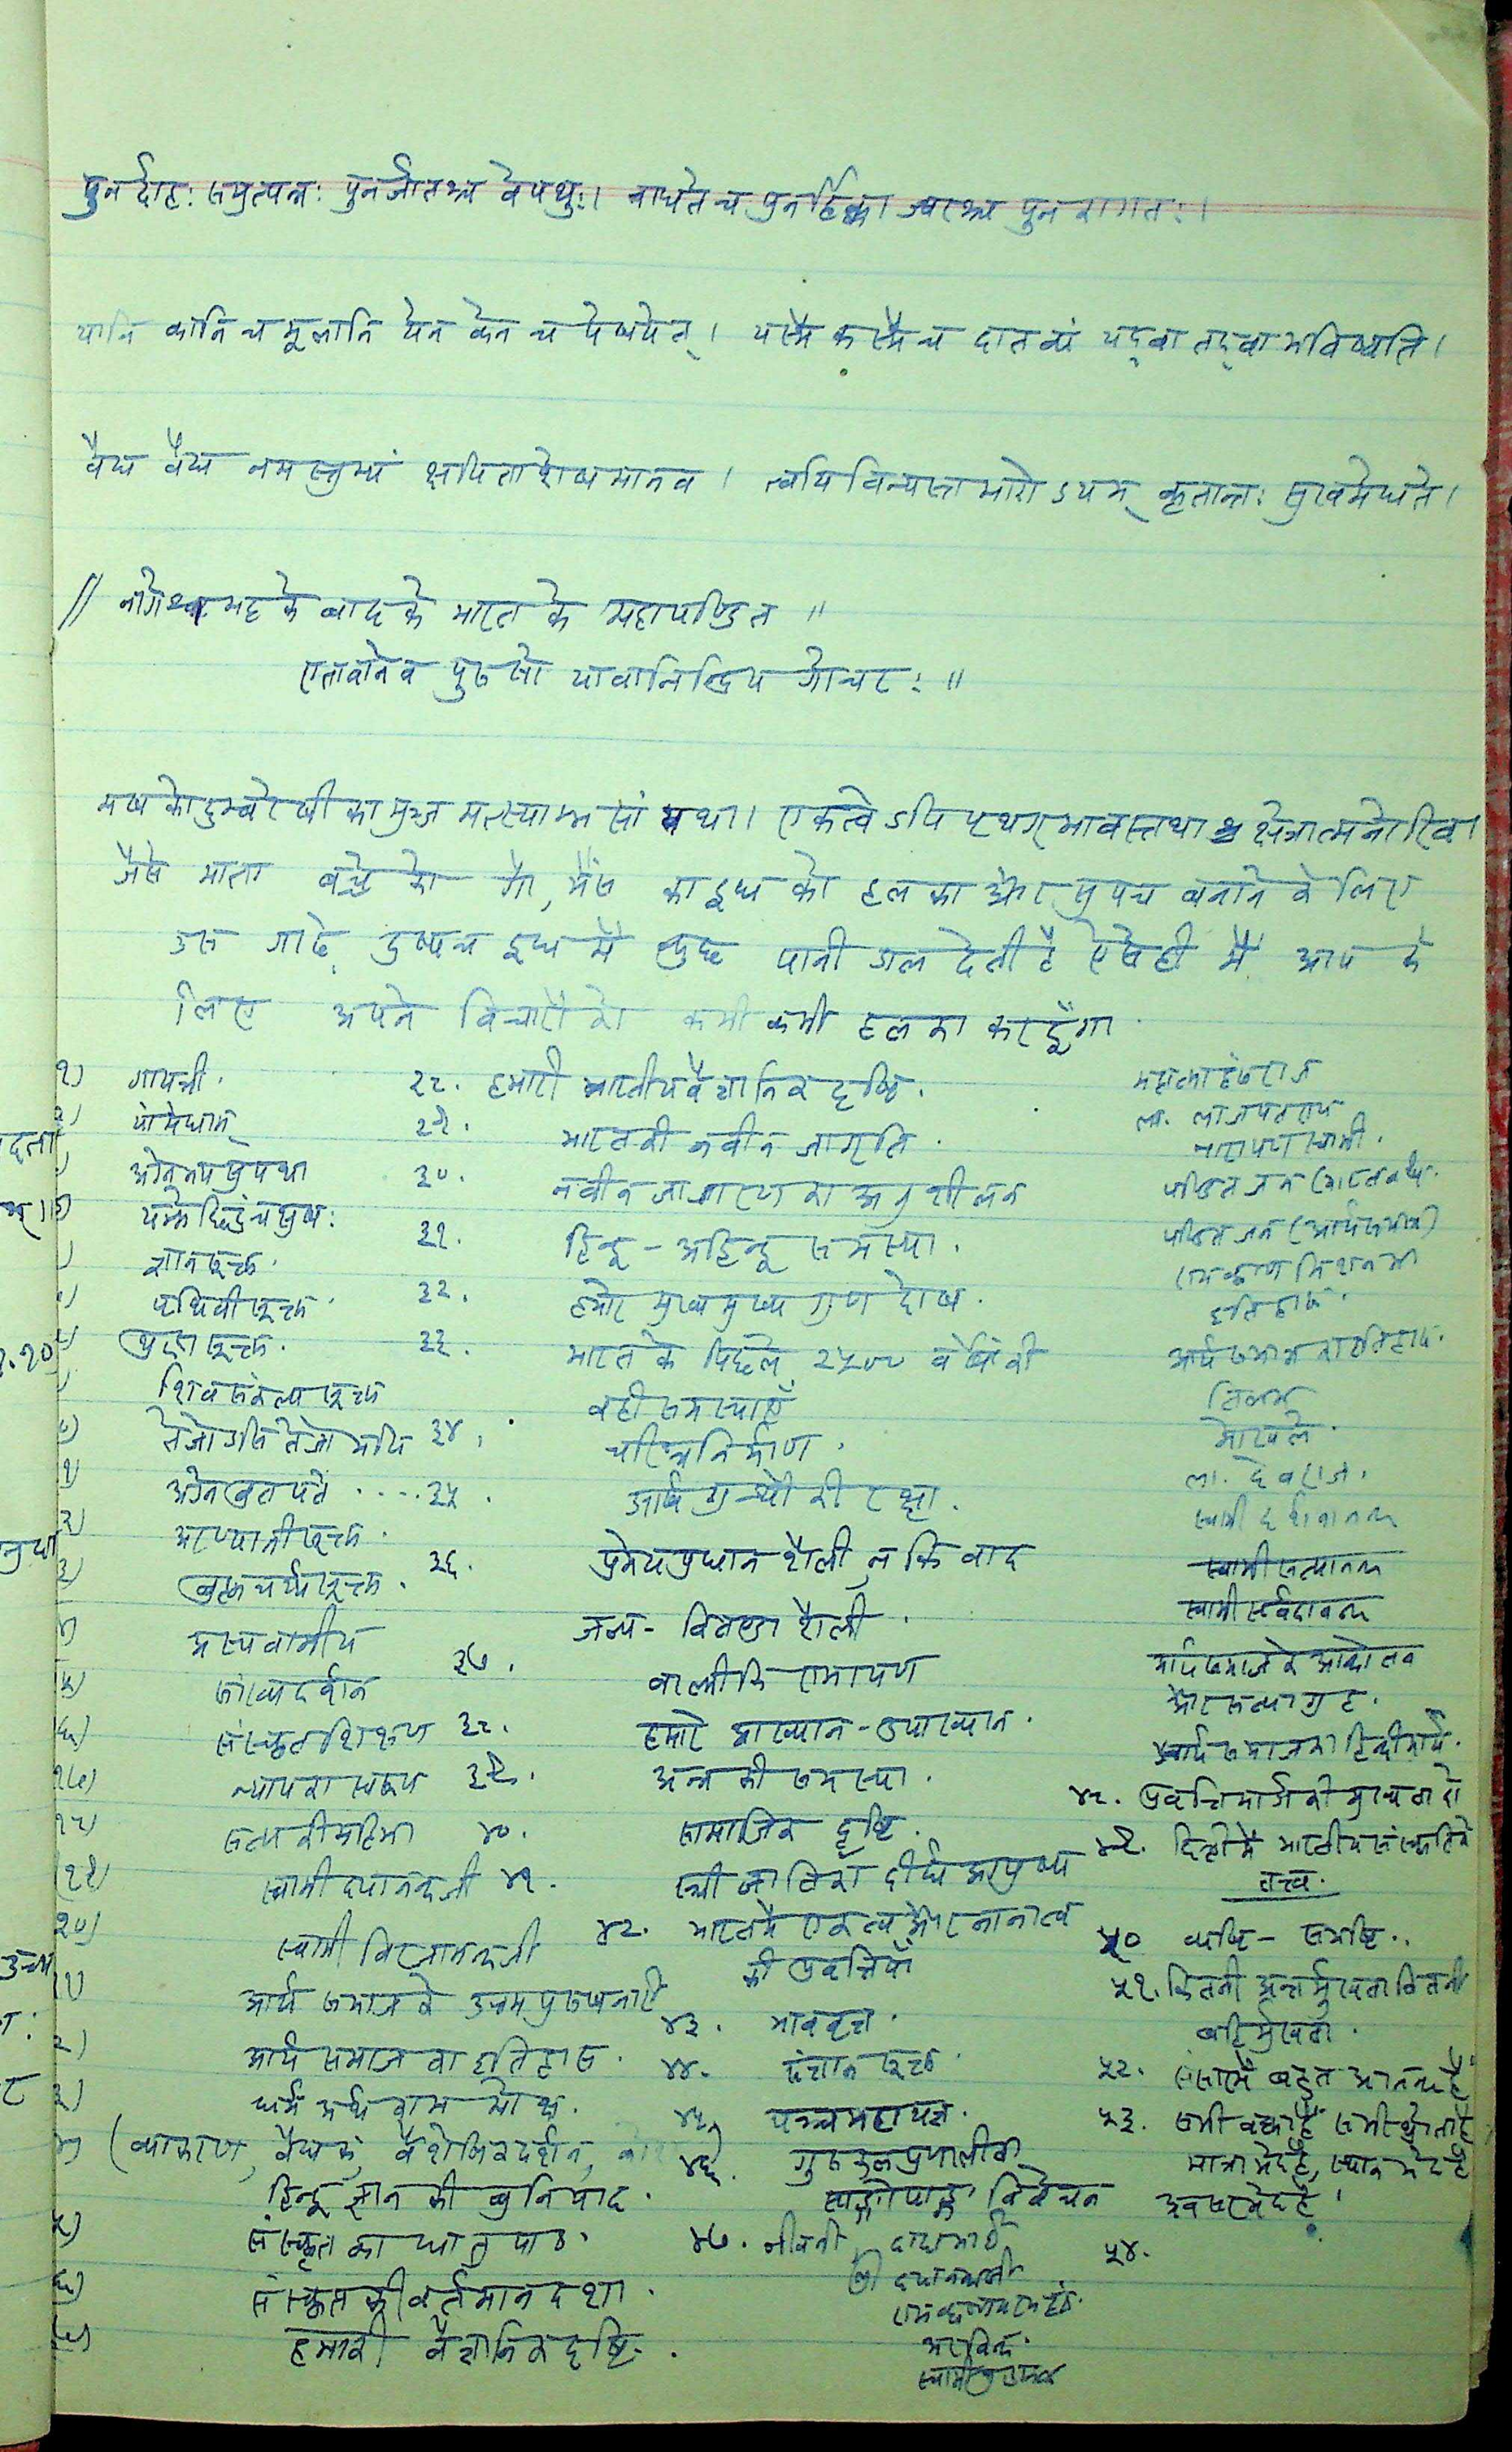 पुनर्दाहः समुत्पन्नः पुनर्जातश्च वेपथुः। बाधते च पुनर्हिक्का ज्वरश्च पुनरागतः।
यानि कानि च मूलानि येन केन च पेषयेत्। यस्मै कस्मै च दातव्यं यद्वा तद्वा भविष्यति।
वैद्य वैद्य नमस्तुभ्यं क्षपिताशेषमानव। त्वयि विन्यस्तभारोऽयम् कृतान्तः सुखमेधते।
// नागेश भट्ट के बाद के भारत के महापण्डित ॥
एतावानेव पुरुषो यावानिन्द्रिय गोचरः ॥
मशकोदुम्बरेषीका मुञ्ज मत्स्याम्भसां यथा। एकत्वेऽपि पृथग्भावस्तथा क्षेत्रात्मनोरिव।
जैसे माता बच्चे को गौ, भैंस का दूध को हलका और सुपच बनाने के लिए
उस गाढे दुष्पच दूध में कुछ पानी डाल देती है ऐसे ही मैं आप के
लिए अपने विचारों को कभी कभी हलका कर दूँगा
१) गायत्री.
यां मेधाम्
अग्ने नय सुपथा
ज्ञानसूक्त.
पृथिवीसूक्त.
शिवसंकल्पसूक्त
तेजोऽसि तेजो मयि
अग्ने व्रतपते ....
अरण्यानीसूक्त.
ब्रह्मचर्यसूक्त.
अस्यवामीय
सांख्यदर्शन
संस्कृत शिक्षण
न्याय का स्वरूप
सत्य की महिमा
स्वामी दयानन्दजी
२०) स्वामी विरजानन्दजी
आर्य समाज के उत्तम पुरुष
आर्य समाज का इतिहास.
धर्म अर्थ काम मोक्ष.
(व्याकरण, वैद्यक, वैशेषिकदर्शन,
हिन्दू ज्ञान की बुनियाद.
संस्कृत का धातु पाठ.
संस्कृत की वर्तमान दशा.
हमारी वैज्ञानिक दृष्टि.
२८. हमारी भारतीय वैज्ञानिक दृष्टि.
२९. भारत की नवीन जागृति.
३०. नवीन जागरण का अनुशीलन
३१. हिन्दू - अहिन्दू समस्या.
३२. हमारे मुख्य मुख्य गुण दोष.
३३. भारत के पिछले २५०० वर्षों की
वही समस्याएँ
३४. चरित्र निर्माण.
३५. आर्ष ग्रन्थों की रक्षा.
३६. प्रमेयप्रधान शैली न कि वाद
जल्प - वितण्डा शैली.
३७. वाल्मीकि रामायण
३८. हमारे आख्यान - उपाख्यान.
३९. अन्न की समस्या.
४०. सामाजिक दृष्टि.
४१. स्त्री जाति का दीर्घ आयुष्य
४२. भारत में एकत्व और नानात्व
की प्रवृत्तियाँ
४३. भाववृत्त.
४४. संज्ञान सूक्त.
४५. पञ्चमहायज्ञ.
४६. गुरुकुल प्रणाली का
साङ्गोपाङ्ग विवेचन
४७. जीवनी दादाभाई
श्री दयानन्दजी
रामकृष्ण परमहंस.
अरविन्द.
महात्मा हंसराज
ला. लाजपतराय
नारायण स्वामी.
पण्डित जन (भारतवर्ष.
पण्डित जन (आर्यसमाज)
रामकृष्ण मिशन का
इतिहास.
आर्य समाज का इतिहास.
तिलक
गोखले.
ला. देवराज.
स्वामी दर्शनानन्द
स्वामी सत्यानन्द
स्वामी सर्वदानन्द
आर्यसमाज के आन्दोलन
और सत्याग्रह.
आर्य समाज का हिन्दी कार्य.
४८. प्रवृत्ति मार्ग की मुख्यता हो
४९. हिन्दी में भारतीय संस्कृति के
तत्त्व.
५० व्यष्टि - समष्टि..
५१. कितनी अन्तर्मुखता कितनी
बहिर्मुखता.
५२. संसार में बहुत आनन्द है
५३. सभी वक्ता हैं सभी श्रोता हैं
मात्रा भेद है, स्थान भेद है
अवसर भेद है.
५४.